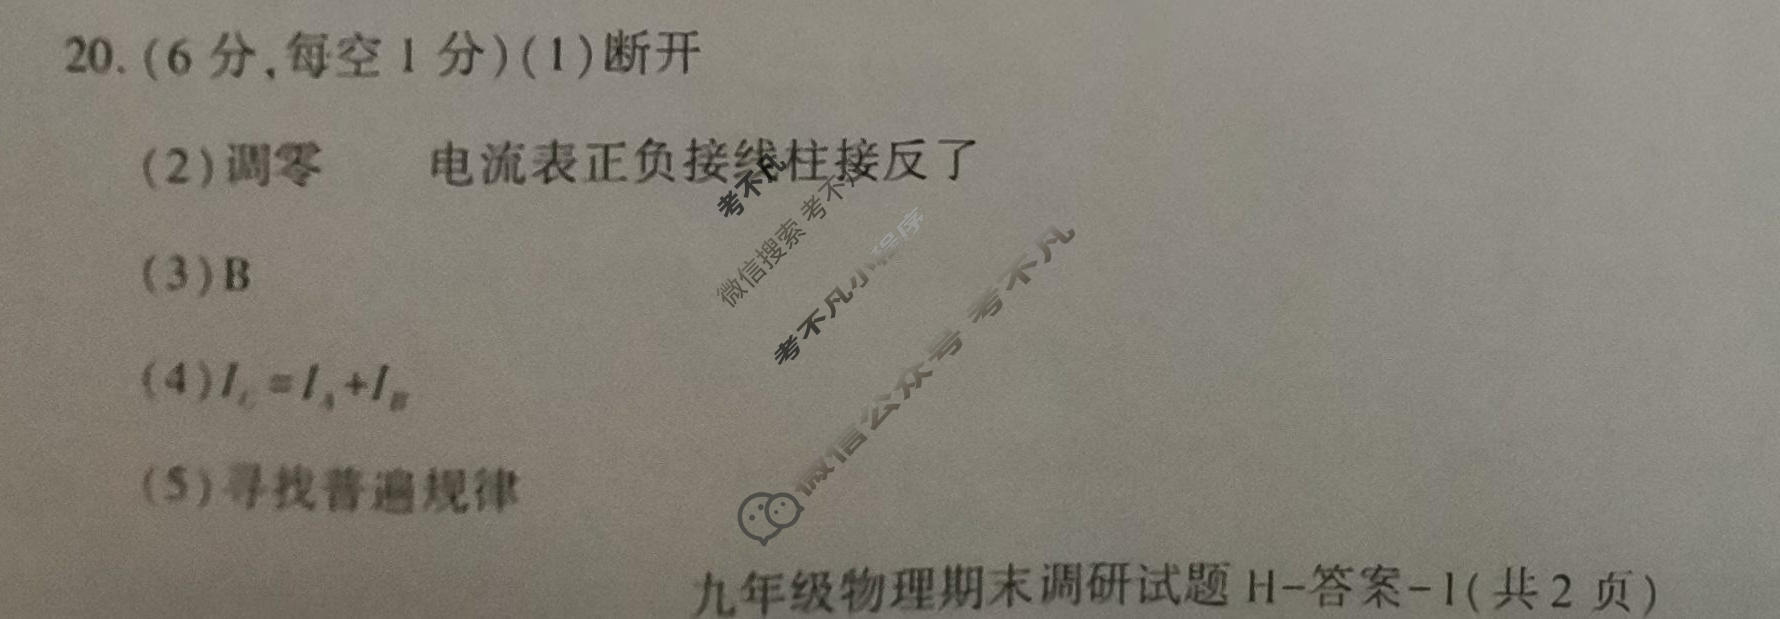 20. (6 分,每空 1 分)(1)断开
(2)调零 电流表正负接线柱接反了
(3)B
(4)I_C=I_A+I_B
(5)寻找普遍规律
考不凡
微信搜索 考不凡
考不凡小程序
微信公众号 考不凡
九年级物理期末调研试题 H-答案-1(共 2 页)